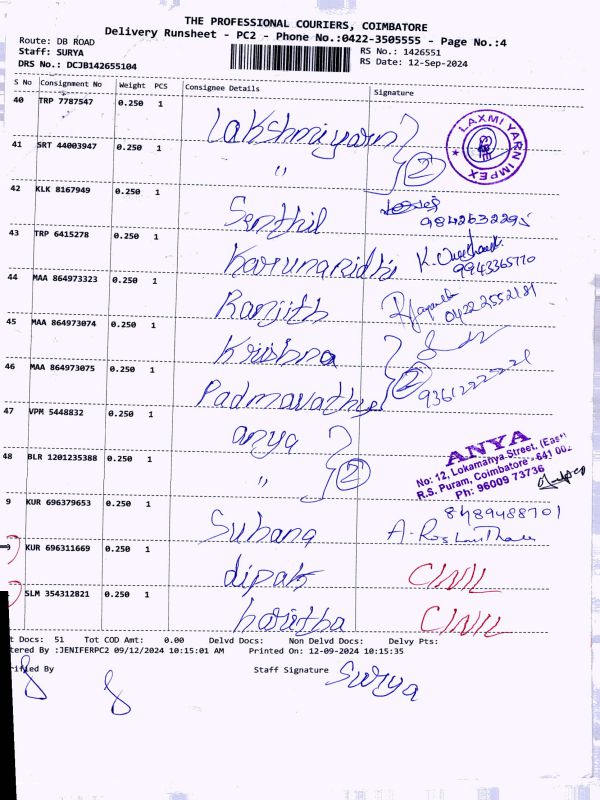 THE PROFESSIONAL COURIERS, COIMBATORE
Delivery Runsheet - PC2 - Phone No.:0422-3505555 - Page No.:4
Route: DB ROAD
RS No.: 1426551
Staff: SURYA
RS Date: 12-Sep-2024
DRS No.: DCJB142655104
S No Consignment No Weight PCS Consignee Details Signature
40 TRP 7787547 0.250 1 Lakshmiyarn
LAXMI YARN IMPEX
41 SRT 44003947 0.250 1 " 2
42 KLK 8167949 0.250 1 Senthil
9842632295
43 TRP 6415278 0.250 1 Karunanidhi K.
9943365770
44 MAA 864973323 0.250 1 Ranjith
0422 2552181
45 MAA 864973074 0.250 1 Krishna
46 MAA 864973075 0.250 1 Padmavathy 2
47 VPM 5448832 0.250 1 anya
ANYA
No: 12, Lokamanya Street, (East)
R.S. Puram, Coimbatore - 641 002
Ph: 96009 73736
48 BLR 1201235388 0.250 1 " 2
9 KUR 696379653 0.250 1 Suhana
8489488701
KUR 696311669 0.250 1 dipak C/N/L
SLM 354312821 0.250 1 haritha C/N/L
t Docs: 51 Tot COD Amt: 0.00 Delvd Docs: Non Delvd Docs: Delvy Pts:
tered By :JENIFERPC2 09/12/2024 10:15:01 AM Printed On: 12-09-2024 10:15:35
rified By Staff Signature Surya